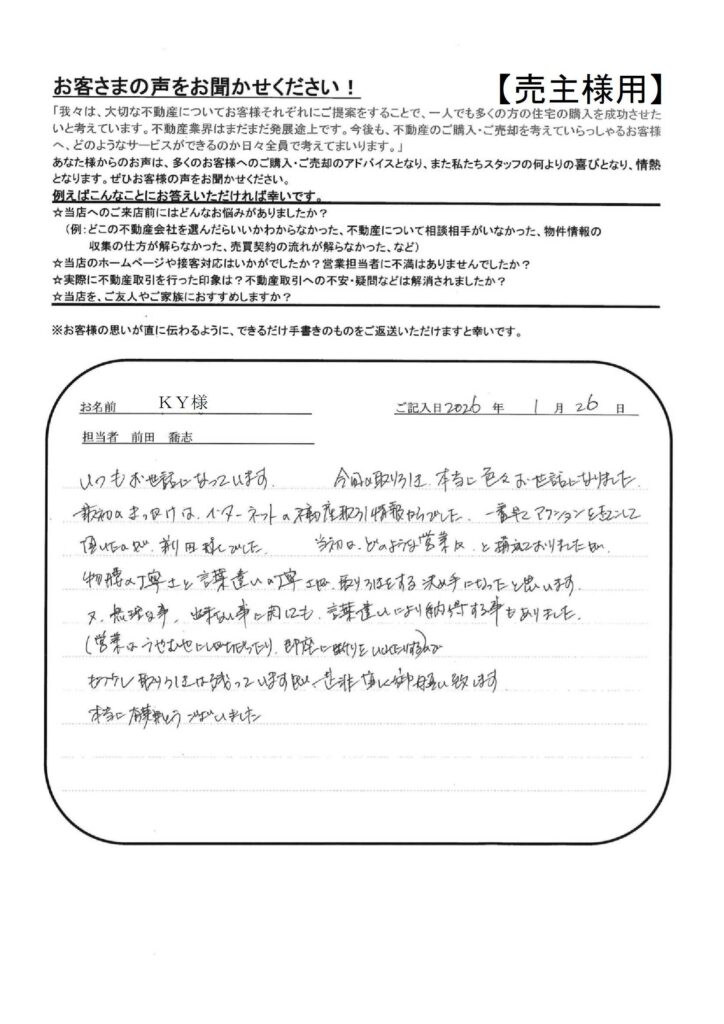 お客さまの声をお聞かせください！
【売主様用】
「我々は、大切な不動産についてお客様それぞれにご提案をすることで、一人でも多くの方の住宅の購入を成功させた
いと考えています。不動産業界はまだまだ発展途上です。今後も、不動産のご購入・ご売却を考えていらっしゃるお客様
へ、どのようなサービスができるのか日々全員で考えてまいります。」
あなた様からのお声は、多くのお客様へのご購入・ご売却のアドバイスとなり、また私たちスタッフの何よりの喜びとなり、情熱
となります。ぜひお客様の声をお聞かせください。
例えばこんなことにお答えいただければ幸いです。
☆当店へのご来店前にはどんなお悩みがありましたか？
（例：どこの不動産会社を選んだらいいかわからなかった、不動産について相談相手がいなかった、物件情報の
収集の仕方が解らなかった、売買契約の流れが解らなかった、など）
☆当店のホームページや接客対応はいかがでしたか？営業担当者に不満はありませんでしたか？
☆実際に不動産取引を行った印象は？不動産取引への不安・疑問などは解消されましたか？
☆当店を、ご友人やご家族におすすめしますか？
※お客様の思いが直に伝わるように、できるだけ手書きのものをご返送いただけますと幸いです。
お名前 ＫＹ様
ご記入日 2026 年 1 月 26 日
担当者 前田 喬志
いつもお世話になっています。 今回の取引は、本当に色々お世話になりました。
最初のきっかけは、インターネットの不動産取引情報からでした。一番早くアクションを起こして
頂いたのが、前田様でした。 当初は、どのような営業は、と構えておりましたが、
物腰の丁寧さと言葉遣いの丁寧さは、取引をする決め手になったと思います。
又、無理な事、出来ない事に関しても、言葉遣いにより納得する事もありました。
(営業はうやむやに
取引は残っていますが、是非宜しく御願い致します
本当に有難とうございました